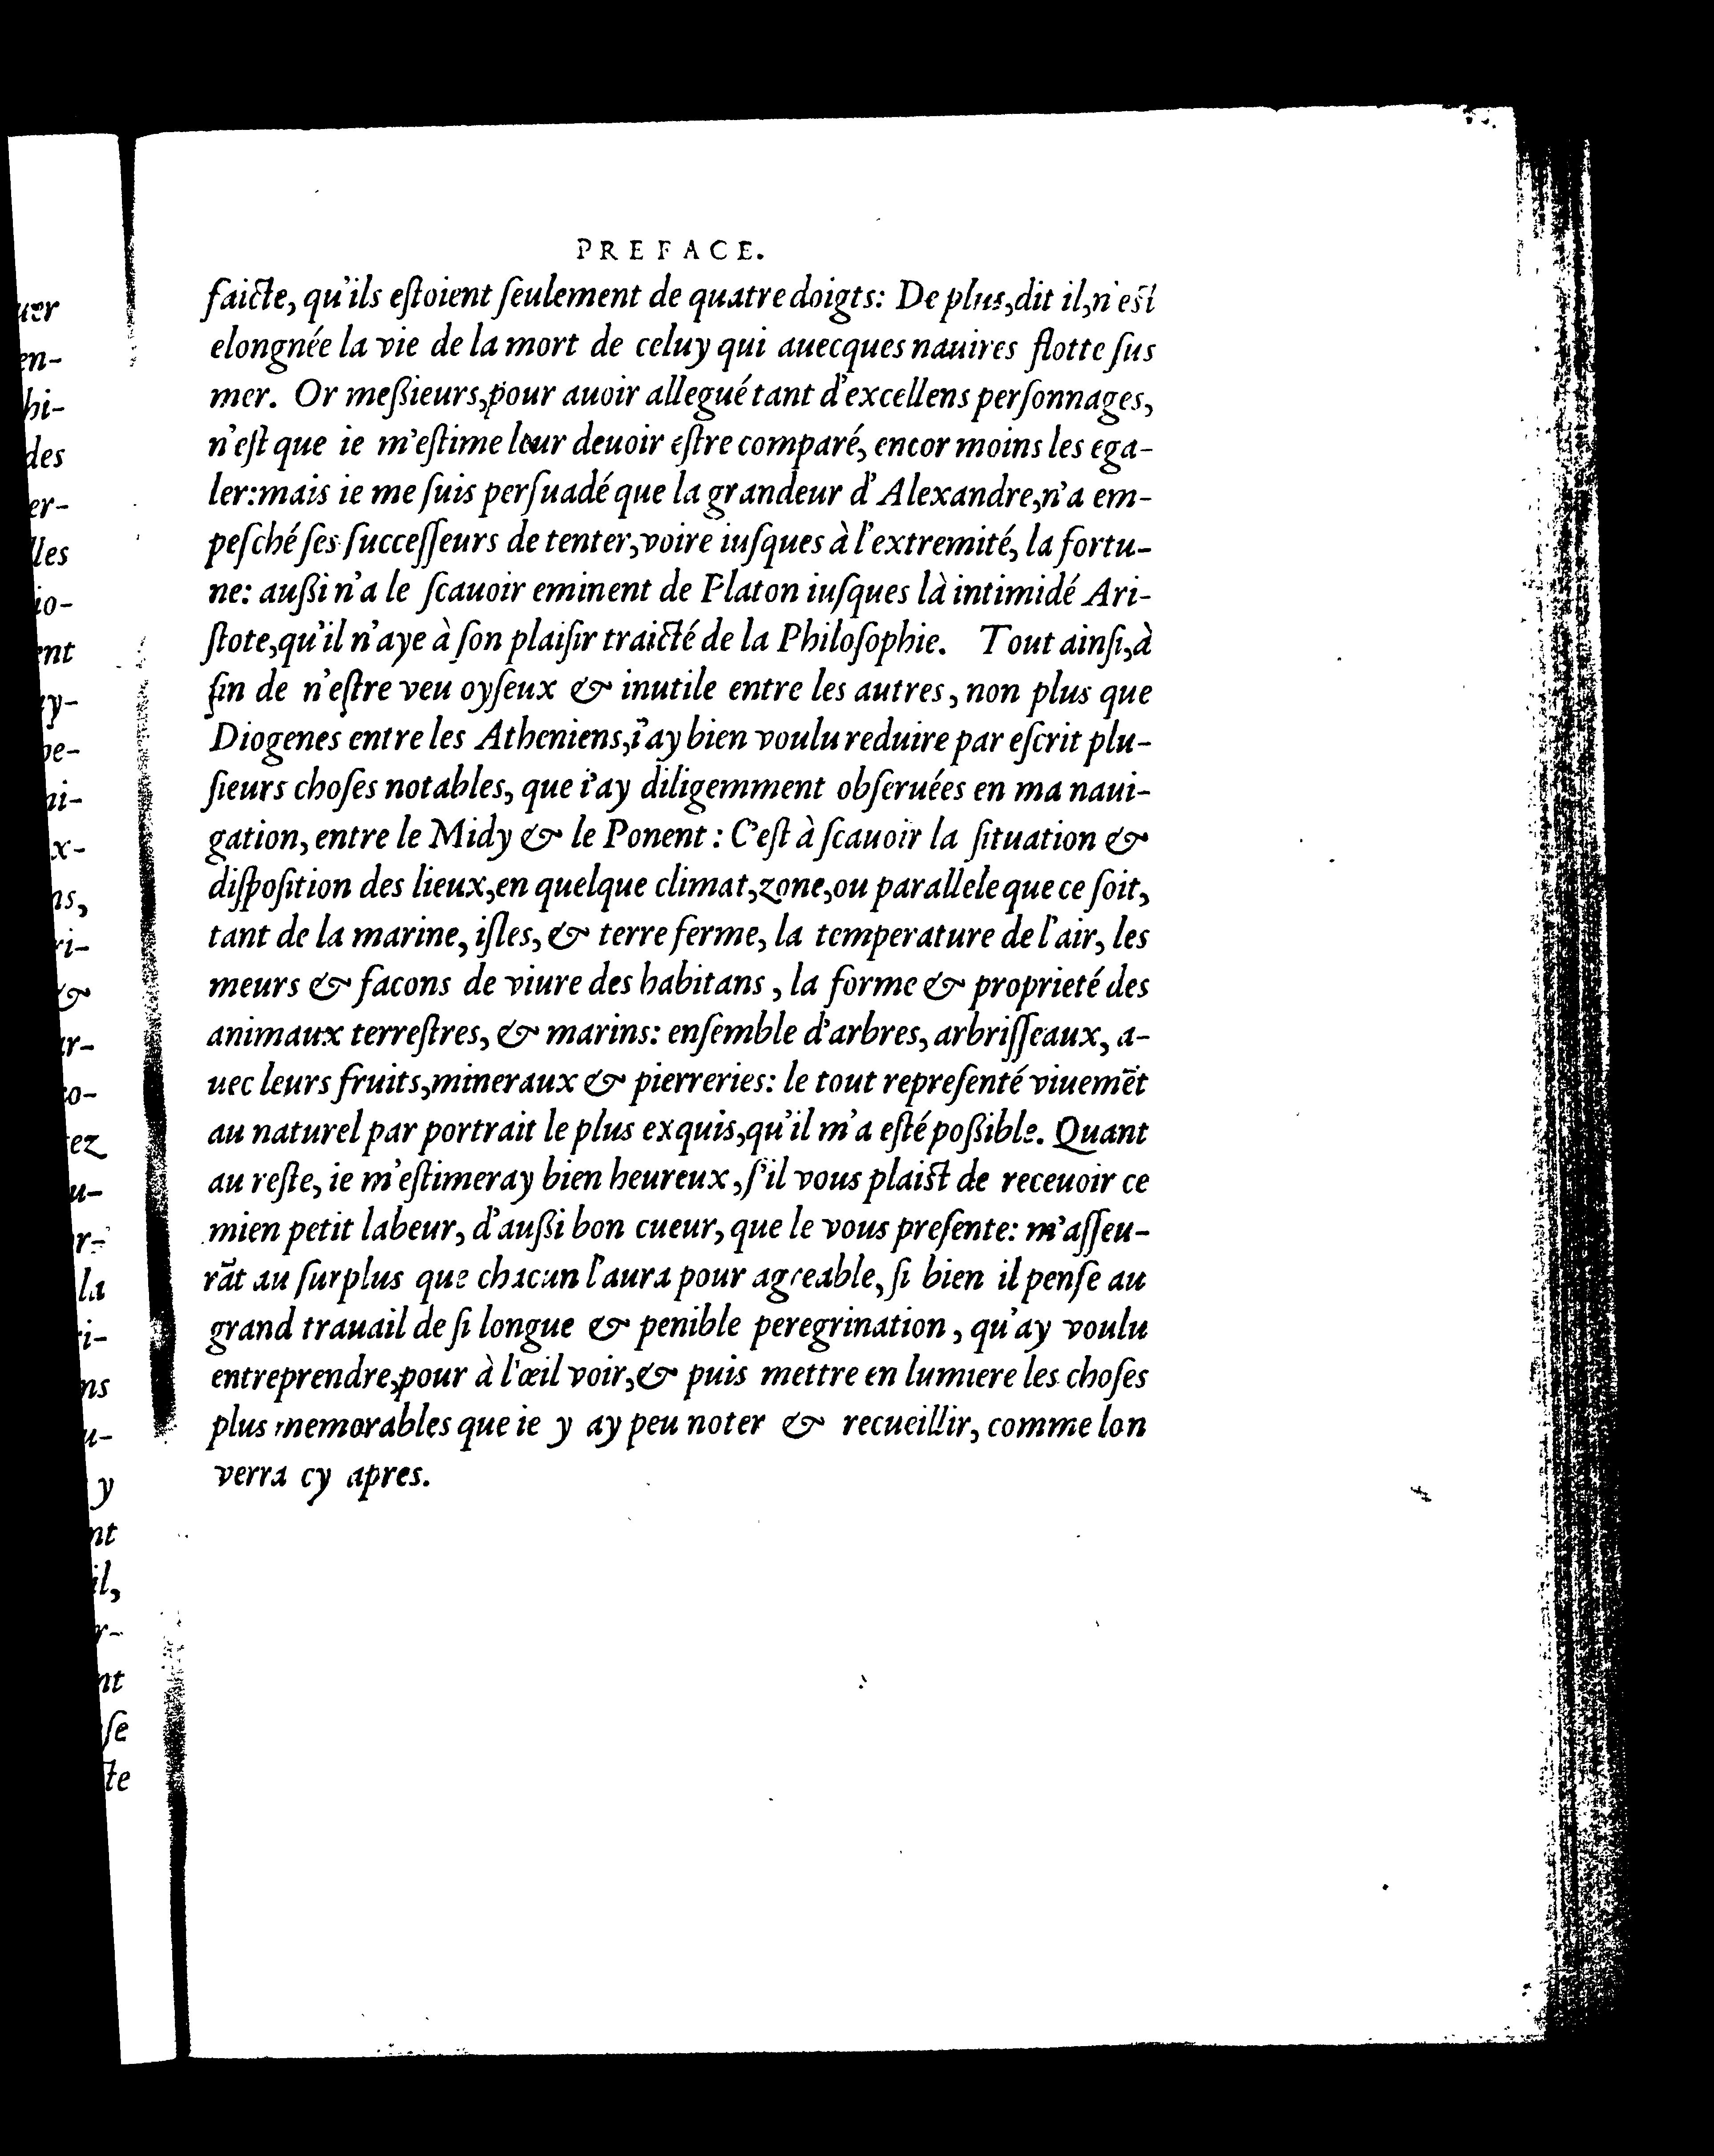 PREFACE.
faicte, qu'ils eſtoient ſeulement de quatre doigts: De plus, dit il, n'eſt
elongnée la vie de la mort de celuy qui auecques nauires flotte ſus
mer. Or meßieurs, pour auoir allegué tant d'excellens perſonnages,
n'eſt que ie m'eſtime leur deuoir eſtre comparé, encor moins les ega-
ler: mais ie me ſuis perſuadé que la grandeur d'Alexandre, n'a em-
peſché ſes ſucceſſeurs de tenter, voire iuſques à l'extremité, la fortu-
ne: außi n'a le ſcauoir eminent de Platon iuſques là intimidé Ari-
ſtote, qu'il n'aye à ſon plaiſir traicté de la Philoſophie. Tout ainſi, à
fin de n'eſtre veu oyſeux & inutile entre les autres, non plus que
Diogenes entre les Atheniens, i'ay bien voulu reduire par eſcrit plu-
ſieurs choſes notables, que i'ay diligemment obſeruées en ma naui-
gation, entre le Midy & le Ponent: C'eſt à ſcauoir la ſituation &
diſpoſition des lieux, en quelque climat, zone, ou parallele que ce ſoit,
tant de la marine, iſles, & terre ferme, la temperature de l'air, les
meurs & facons de viure des habitans, la forme & proprieté des
animaux terreſtres, & marins: enſemble d'arbres, arbriſſeaux, a-
uec leurs fruits, mineraux & pierreries: le tout repreſenté viuemēt
au naturel par portrait le plus exquis, qu'il m'a eſté poßible. Quant
au reſte, ie m'eſtimeray bien heureux, ſ'il vous plaiſt de receuoir ce
mien petit labeur, d'außi bon cueur, que le vous preſente: m'aſſeu-
rāt au ſurplus que chacun l'aura pour agreable, ſi bien il penſe au
grand trauail de ſi longue & penible peregrination, qu'ay voulu
entreprendre, pour à l'œil voir, & puis mettre en lumiere les choſes
plus memorables que ie y ay peu noter & recueillir, comme lon
verra cy apres.